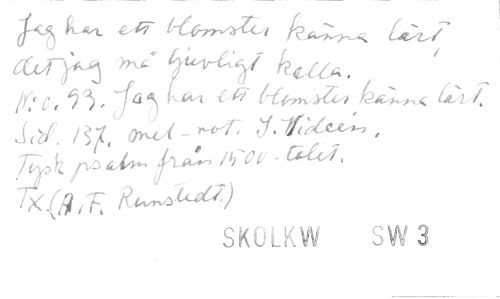 Jag har ett blomster känna lärt,
det jag må ljuvligt kalla.
N:o. 93. Jag har ett blomster känna lärt.
Sid. 137. mel-not. I. Widéen.
Tysk psalm från 1500-talet.
Tx. (A. F. Runstedt.)
SKOLKW SW 3